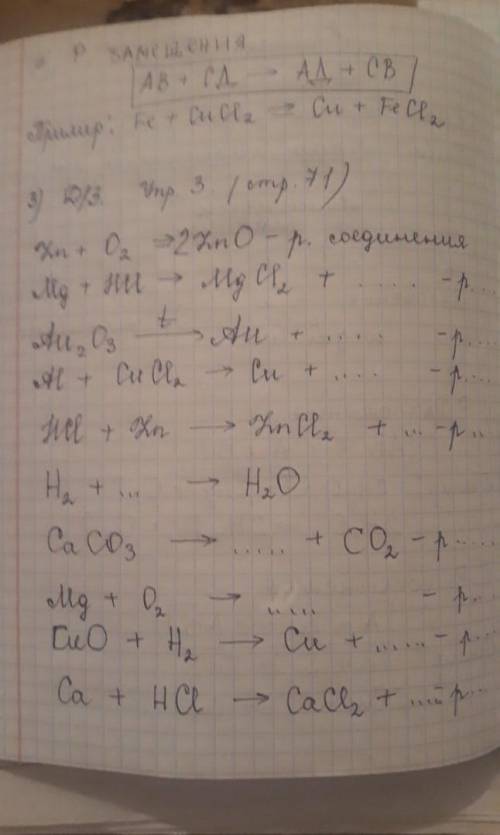 Р ЗАМЕЩЕНИЯ
АВ + СД → АД + СВ
Пример: Fe + CuCl₂ ⇒ Cu + FeCl₂
3) Д/З. Упр. 3. (стр. 71)
Zn + O₂ ⇒ 2ZnO – р. соединения
Mg + HCl → MgCl₂ + .... – р....
Au₂O₃ –t→ Au + .... – р....
Al + CuCl₂ → Cu + .... – р....
HCl + Zn → ZnCl₂ + ... – р...
H₂ + ... → H₂O
CaCO₃ → ..... + CO₂ – р.....
Mg + O₂ → ..... – р...
CuO + H₂ → Cu + ...... – р...
Ca + HCl → CaCl₂ + .... р...